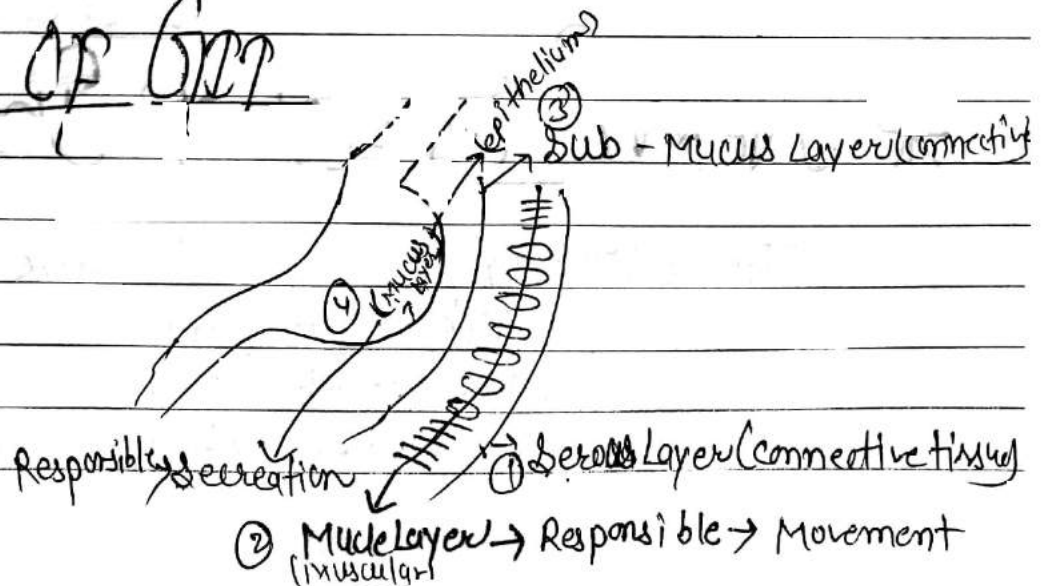 OF GIT
epithelium
③
Sub - Mucus Layer (connective
④ (Mucus
layer
Responsible secreation
① Serous Layer (connective tissue)
② Mucle Layer → Responsible → Movement
(muscular)